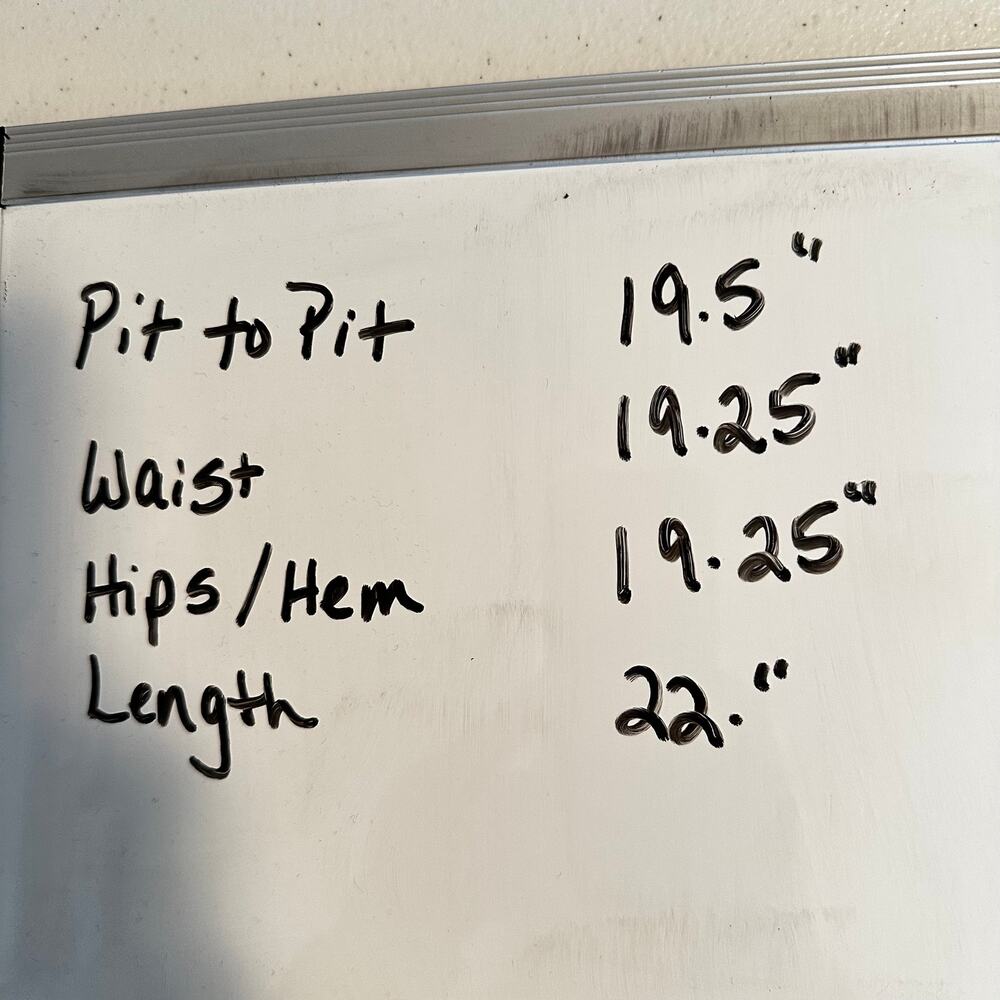 Pit to Pit 19.5"
Waist 19.25"
Hips/Hem 19.25"
Length 22."